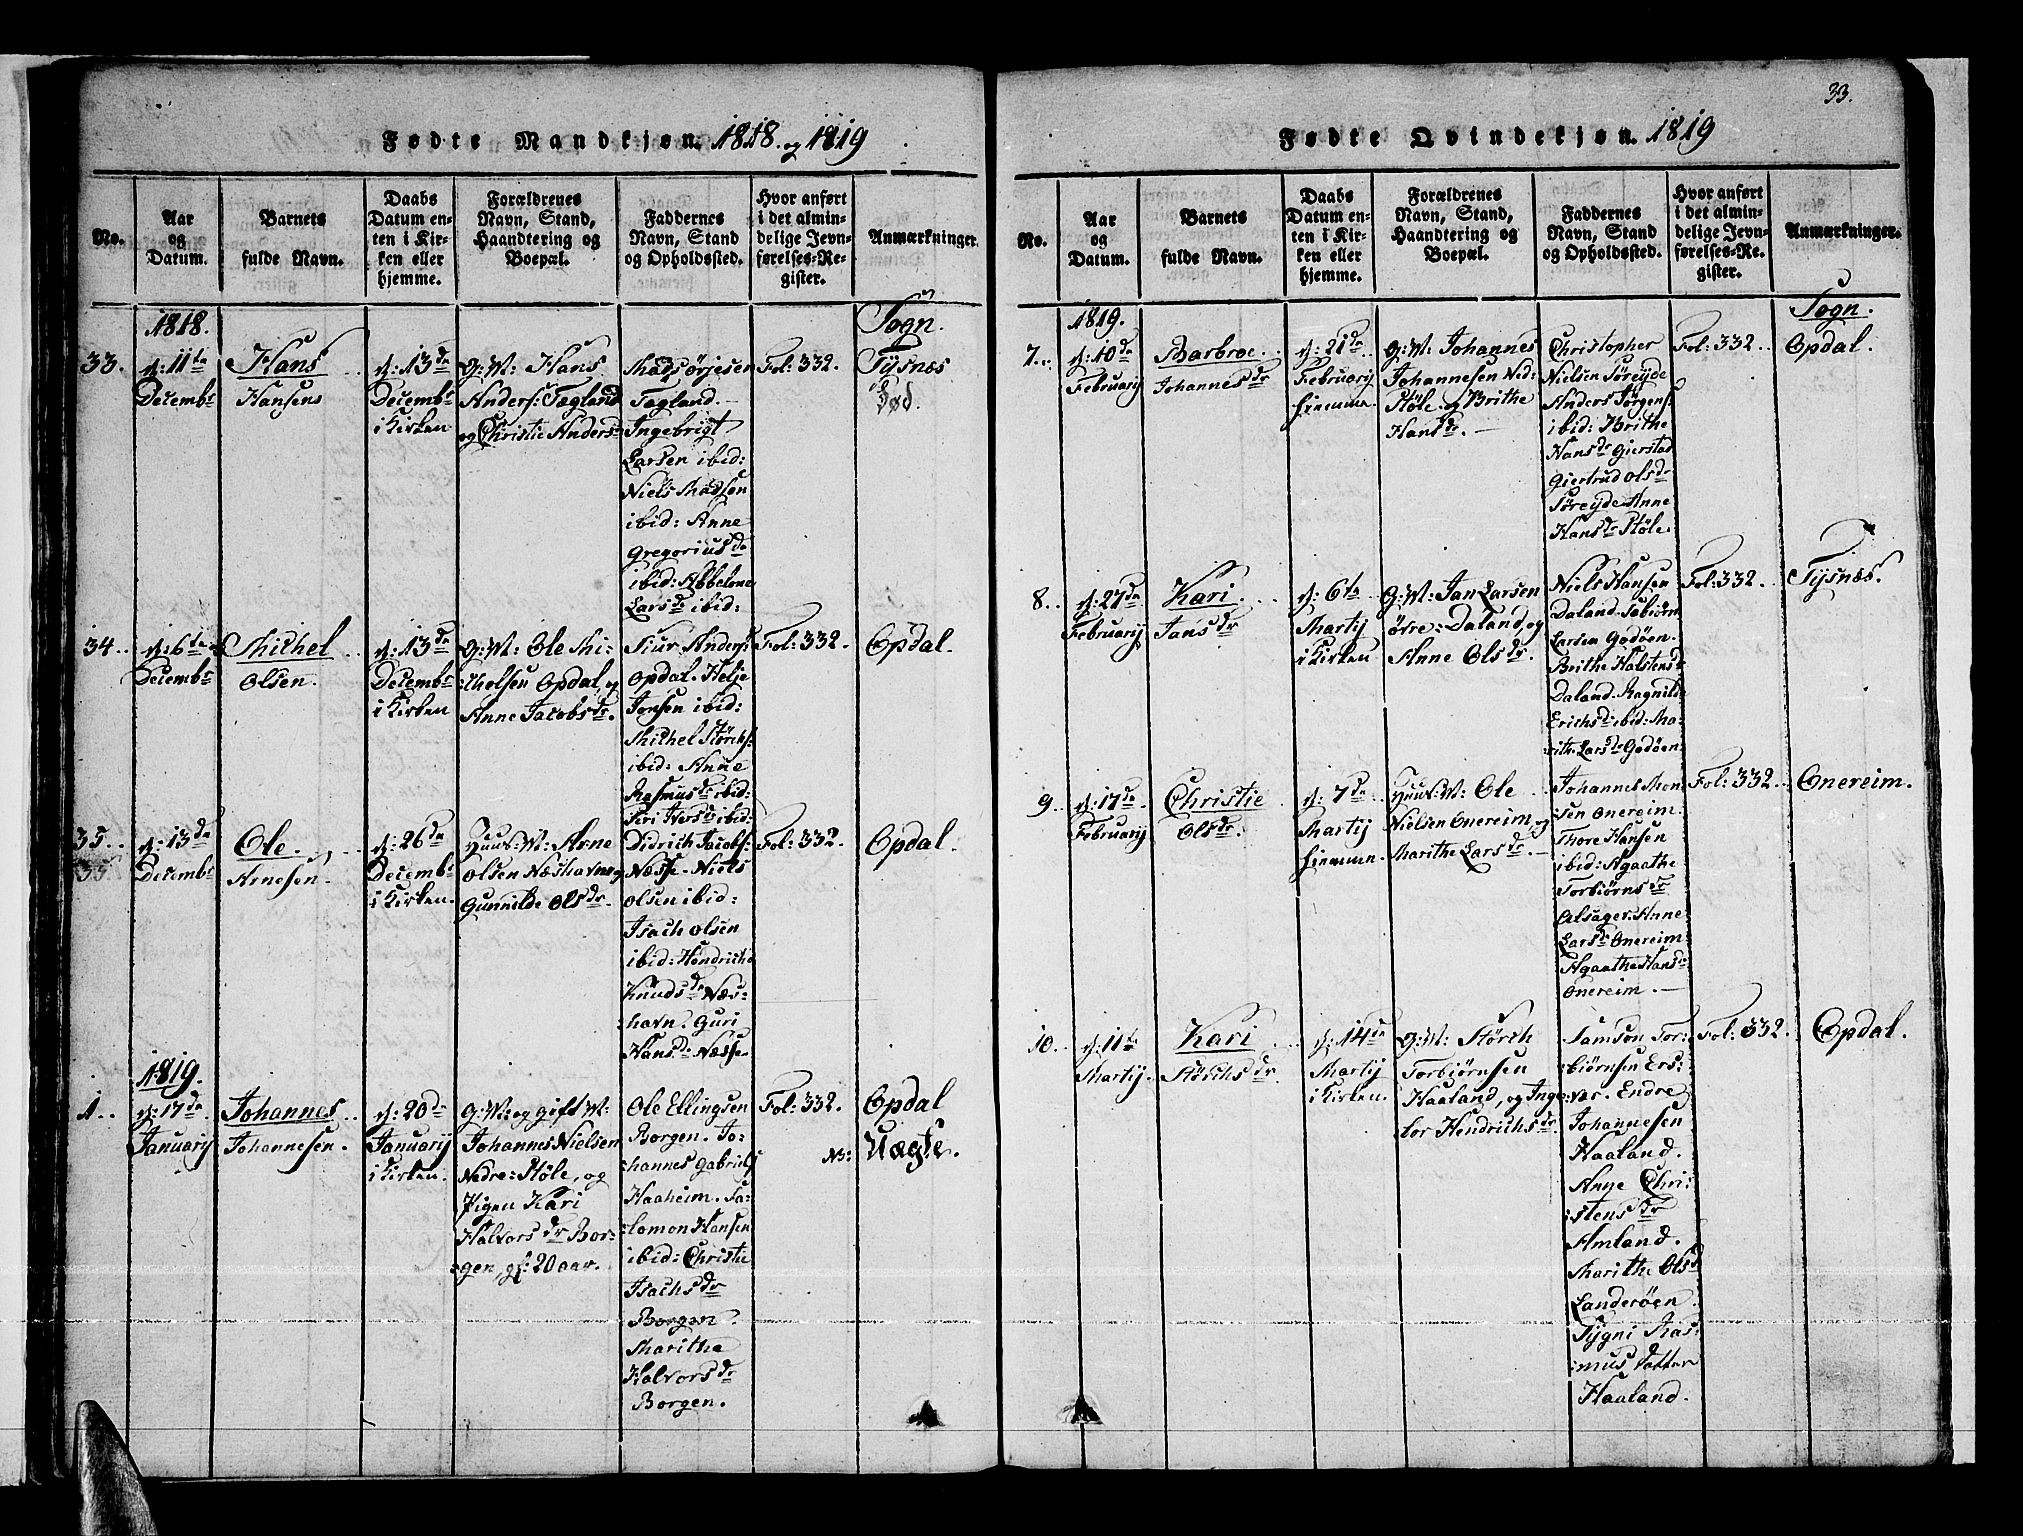 Fødte Mandkjøn 1818. og 1819
No.
Aar
og
Datum.
Barnets
fulde Navn.
Daabs
Datum en-
ten i Kir-
ken eller
hjemme.
Forældrenes
Navn, Stand,
Haandtering og
Boepæl.
Faddernes
Navn, Stand
og Opholdssted.
Hvor anført
i det almin-
delige Jevn-
førelses-Re-
gister.
Anmærkninger.
1818.
Sogn.
33.
d: 11te
Decembr
Hans
Hansens
d: 13de
Decembr
i Kirken
G: M: Hans
Anders: Tegland
og Christie Andersd
Mads Ørjesen
Tegland.
Ingebrigt
Larsen ibid:
Niels Madsen
ibid: Anne
Gregoriusdr
ibid: Abbelone
Larsdr ibid:
Fol: 332.
Tysnæs
Død.
34.
d: 6te
Decembr
Michel
Olsen.
d: 13de
Decembr
i Kirken
G: M: Ole Mi-
:chelsen Opdal, og
Anne Jacobsdr.
Siur Anders:
Opdal. Helje
Jonsen ibid:
Michel Størchs:
ibid: Anne
Rasmusdr ibid:
Siri Iversdr ibid:
Fol: 332.
Opdal.
35.
35
d: 13de
Decembr
Ole.
Arnesen.
d: 26de
Decembr
i Kirken.
Huus: M: Arne
Olsen Næshavn og
Gunnilde Olsdr.
Didrich Jacobs:
Næsse. Niels
Olsen ibid:
Isach Olsen
ibid: Hendriche
Knudsdr Næs:
:havn. Guri
Hansdr Næsse.
Fol: 332.
Opdal.
1819.
1.
d: 17de
Januarij
Johannes
Johannesen.
d: 20de
Januarij
i Kirken.
G: M: og gift M:
Johannes Nielsen
Nedre: Støle, og
Pigen Kari
Halvorsdr Bor-
:gen, gl: 20 aar.
Ole Ellingsen
Borgen. Jo-
:hannes Gabriels
Haaheim. Sa-
:lomon Hansen
ibid: Christie
Isachsdr
Borgen.
Marithe
Halvorsdr
Borgen.
Fol: 332.
NB:
Opdal
Uægte.
33.
Fødte Qvindekjøn. 1819
No.
Aar
og
Datum.
Barnets
fulde Navn.
Daabs
Datum en-
ten i Kir-
ken eller
hjemme.
Forældrenes
Navn, Stand,
Haandtering og
Boepæl.
Faddernes
Navn, Stand
og Opholdssted.
Hvor anført
i det almin-
delige Jevn-
førelses-Re-
gister.
Anmærkninger.
1819.
Sogn.
7.
d: 10de
Februarij
Barbroe.
Johannesdr
d: 21de
Februarij
hiemme.
G: M: Johannes
Johannesen Ned:
Støle og Brithe
Hansdr.
Christopher
Nielsen Søreyde
Anders Jørgens:
ibid: Brithe
Hansdr Gierstad
Giertrud Olsdr
Søreyde Anne
Hansdr Støle.
Fol: 332.
Opdal.
8.
d: 27de
Februarij
Kari.
Jansdr
d: 6te
Martij
i Kirken
G: M: Jan Larsen
øvre: Daland, og
Anne Olsdr.
Niels Hansen
Daland. Sabiørn
Larsen Godøen.
Brithe Halstensd
Daland. Ragnilde
Erichsdr ibid: Ma-
:rithe Larsdr Godøen:
Fol: 332.
Tysnæs.
9.
d: 17de
Februarij
Christie
Olsdr.
d: 7de
Martij
hiemme.
Huus: M: Ole
Nielsen Onereim, og
Marithe Larsdr.
Johannes Mon-
sen Onereim.
Thore Hansen
ibid: Agaathe
Torbiørnsdr
Alsager. Anne
Larsdr Onereim.
Agaathe Hansdr
Onereim.
Fol: 332.
Onereim.
10.
d: 11te
Martij.
Kari
Størchsdr
d: 14de
Martij
i Kirken.
G: M: Størch
Torbiørnsen
Haaland, og Inge-
lor Hendrichsdr.
Samson Tor-
biørnsen Ers-
:vær. Endre
Johannesen
Haaland.
Anne Chri-
:stensdr
Amland.
Marithe Olsd
Landerøen
Sygni Ras-
:mus datter
Haaland.
Fol: 332.
Opdal.